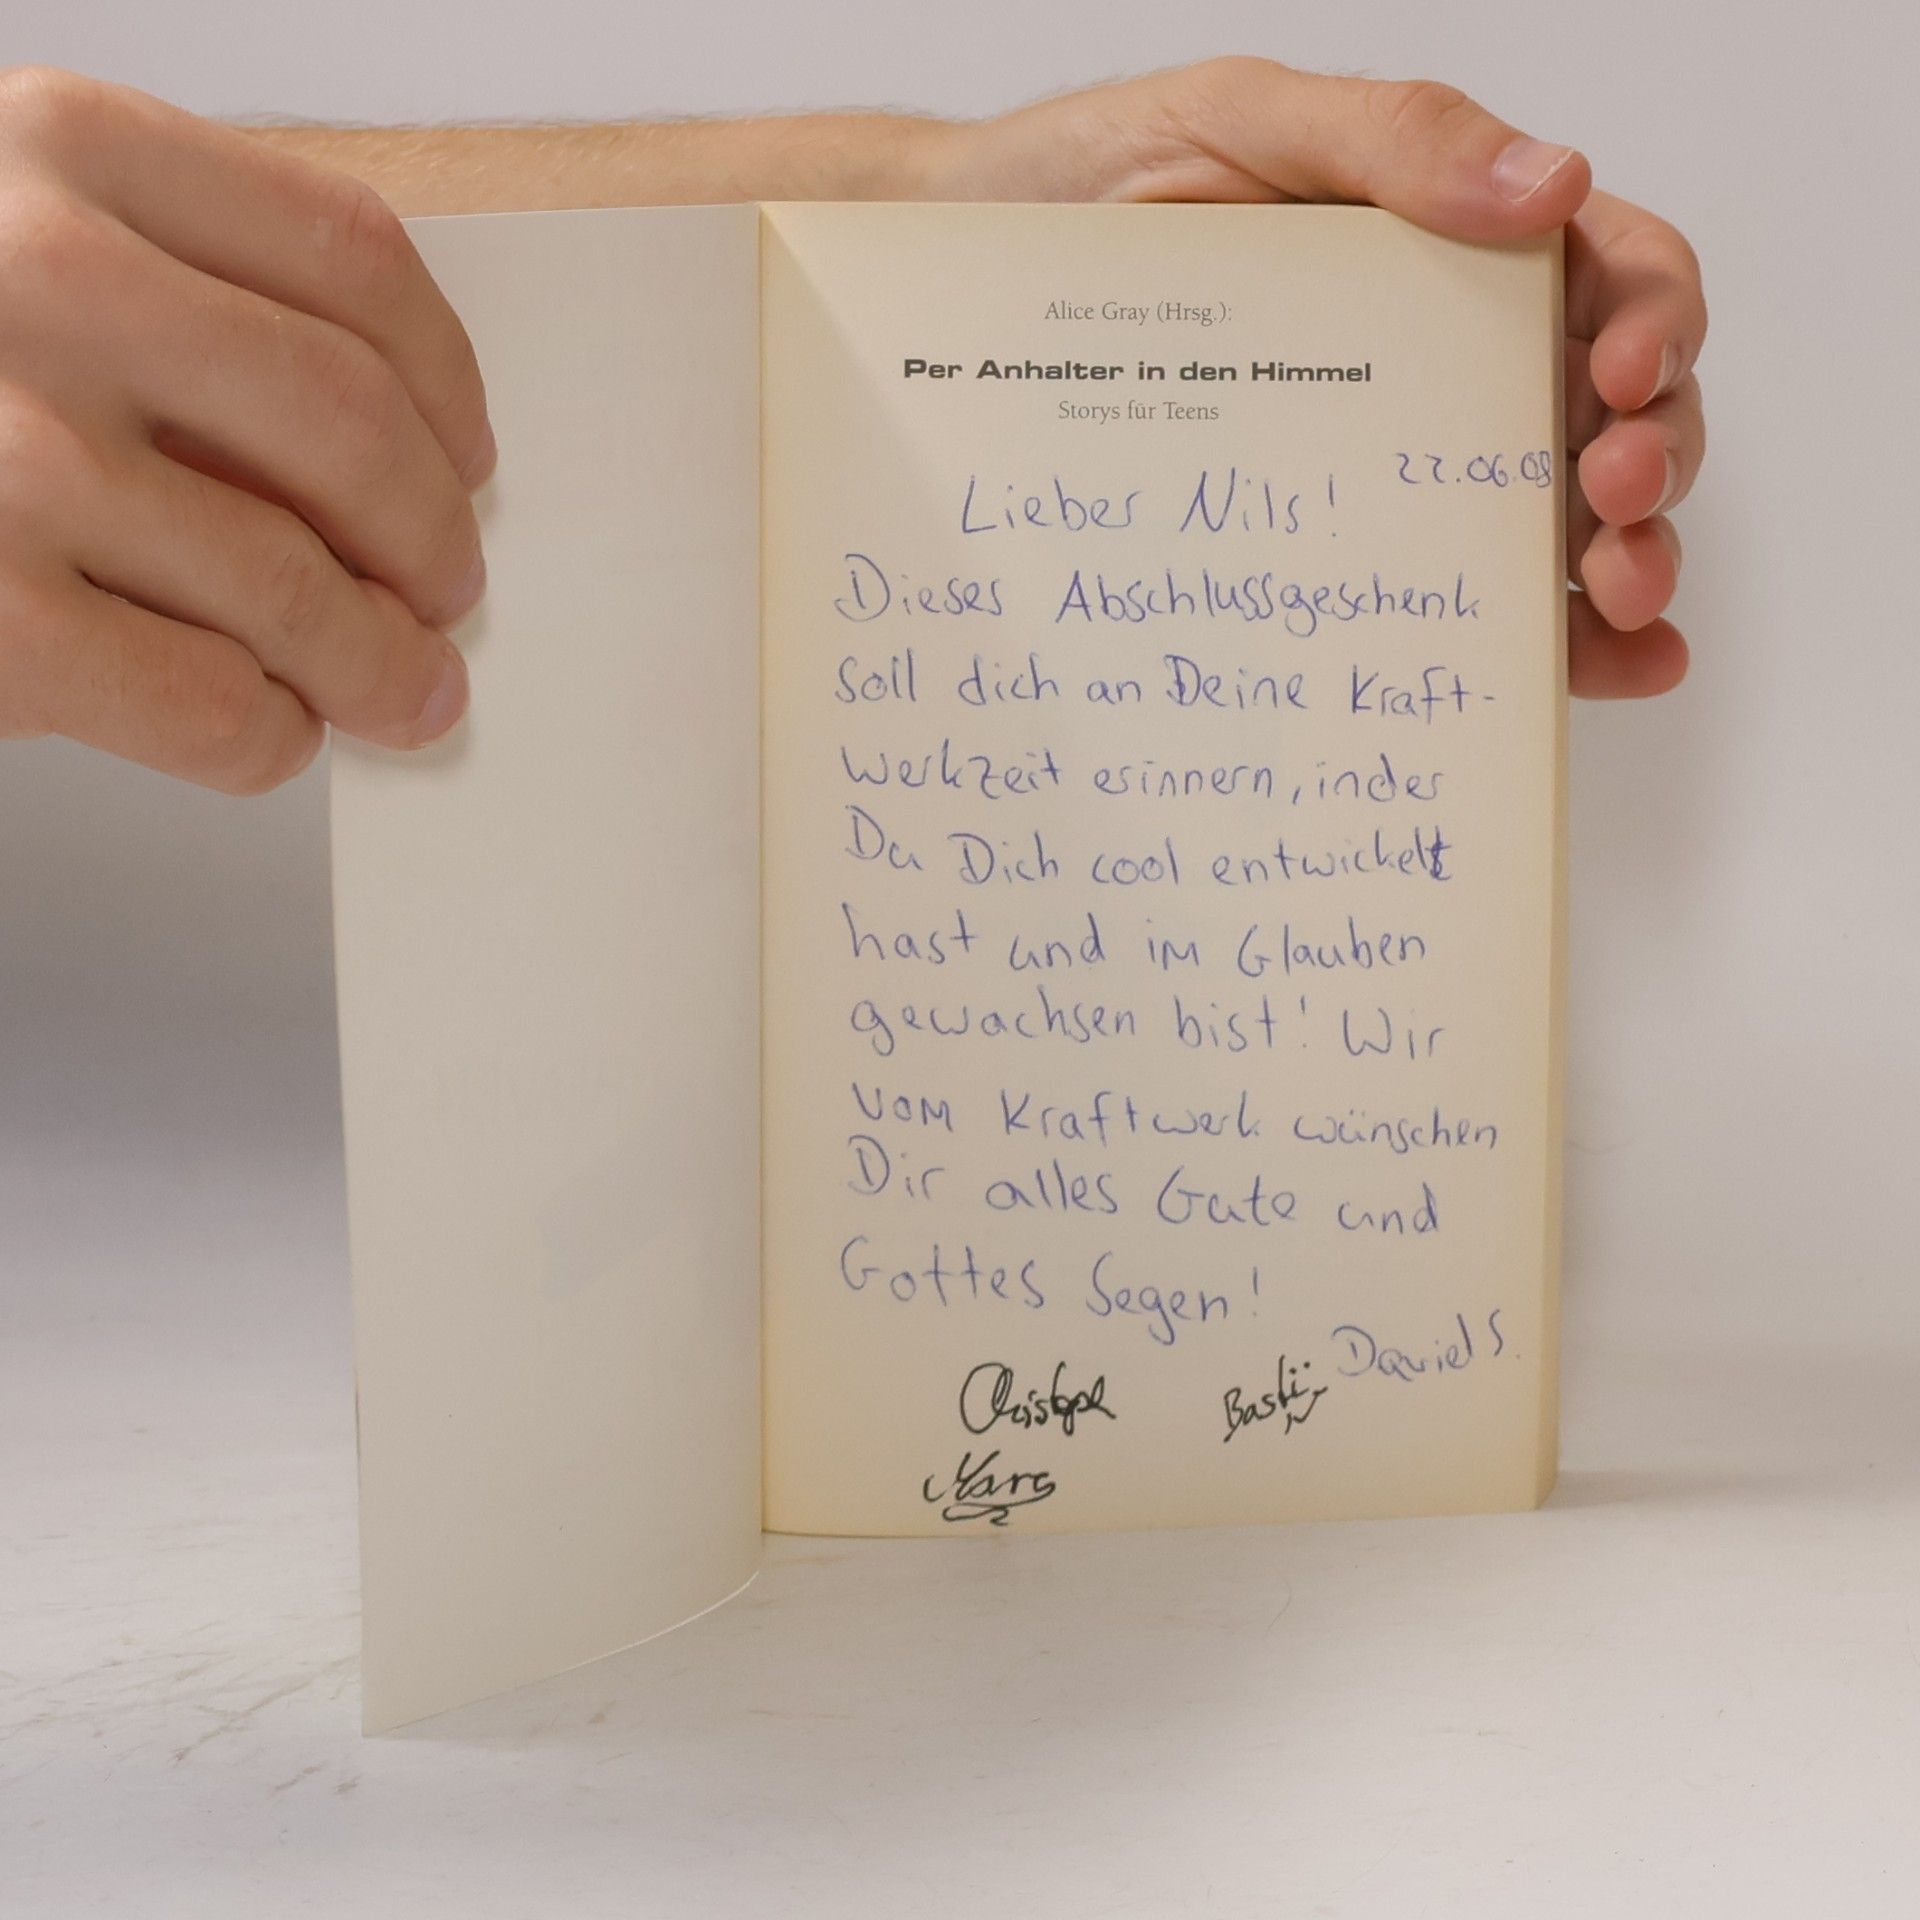 Alice Gray (Hrsg.):
Per Anhalter in den Himmel
Storys für Teens
22.06.08
Lieber Nils!
Dieses Abschlussgeschenk
soll dich an Deine Kraft-
werkzeit erinnern, in der
Du Dich cool entwickelt
hast und im Glauben
gewachsen bist! Wir
vom Kraftwerk wünschen
Dir alles Gute und
Gottes Segen!
Daniel S.
Christoph
Basti
Marc